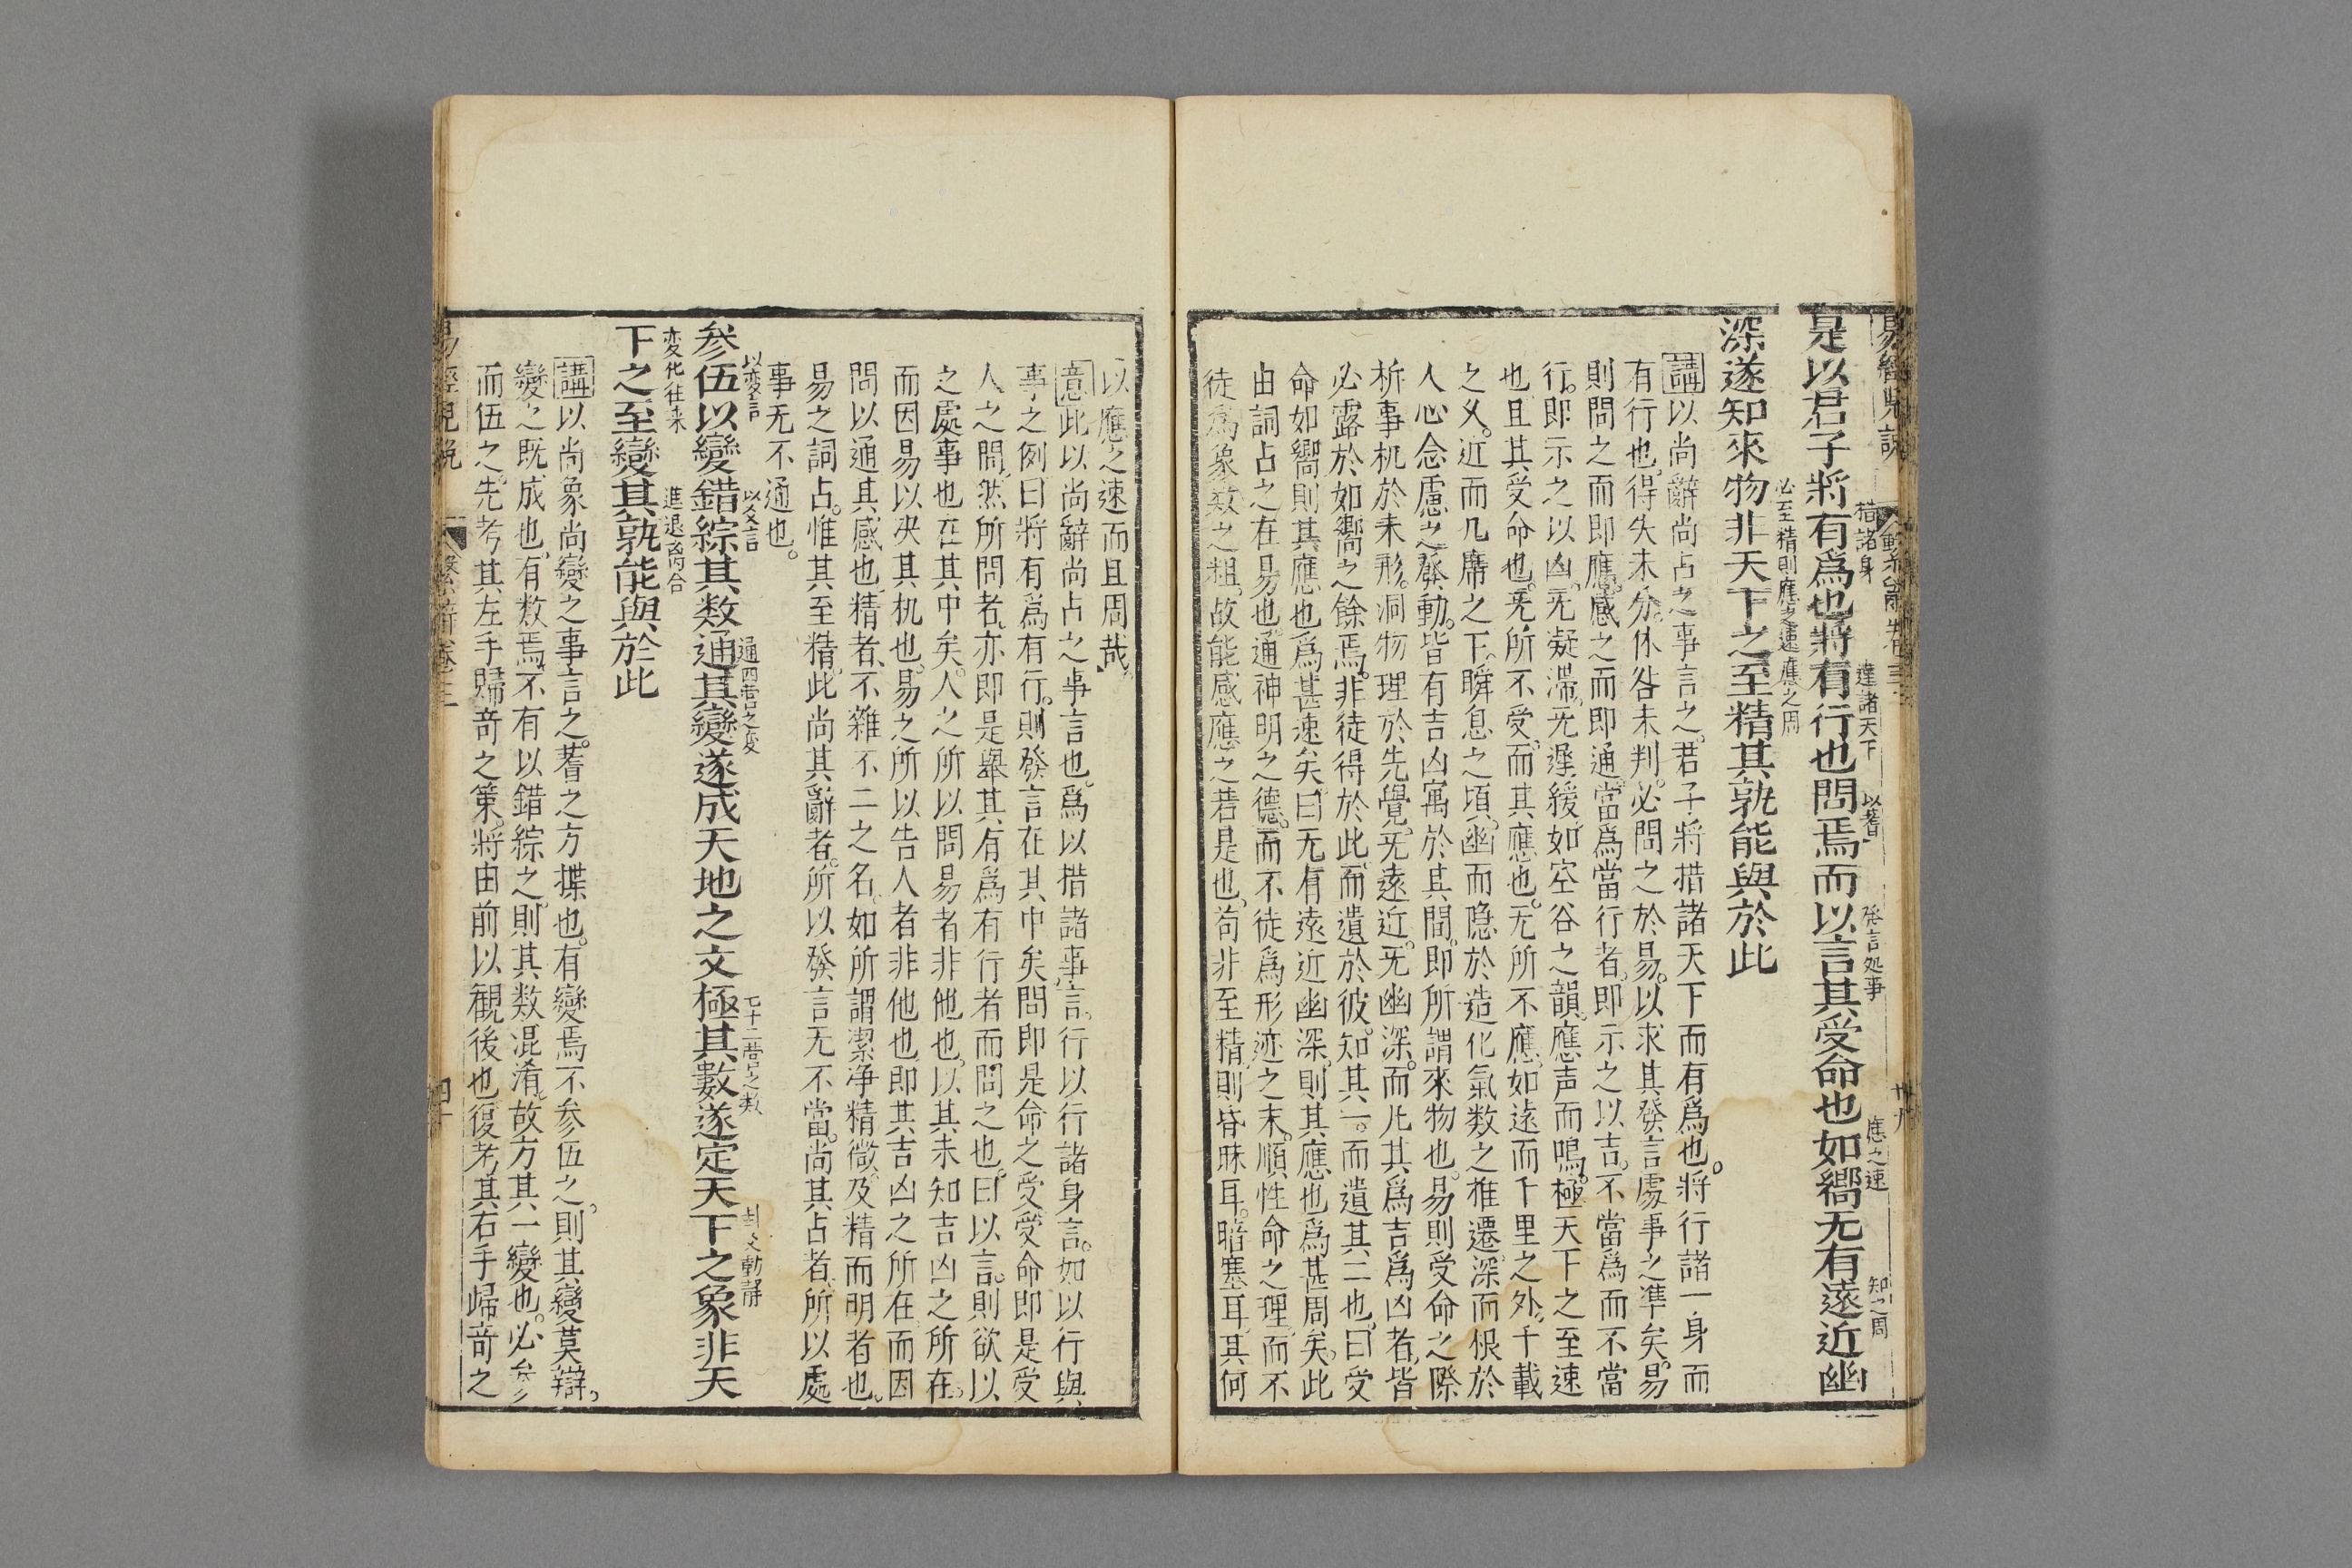 易經兒說
繫辭卷三
卅九
是以君子將有爲也將有行也問焉而以言其受命也如嚮无有遠近幽
措諸身
達諸天下
以蓍
發言処事
應之速
知之周
深遂知來物非天下之至精其孰能與於此
必至精則應之速應之周
講以尚辭尚占之事言之。君子將措諸天下而有爲也。將行諸一身而
有行也。得失未分。休咎未判。必問之於易。以求其發言處事之凖矣。易
則問之而即應。感之而即通。當爲當行者。即示之以吉。不當爲而不當
行。即示之以凶。旡凝滯。旡遲緩。如空谷之韻。應声而鳴。極天下之至速
也。且其受命也。旡所不受。而其應也。无所不應。如遠而千里之外。千載
之乆。近而几席之下。瞬息之頃。幽而隱於造化氣数之推遷。深而根於
人心念慮之發動。皆有吉凶寓於其間。即所謂來物也。易則受命之際
析事机於未形。洞物理於先覺。旡遠近。旡幽深。而凡其爲吉爲凶者。皆
必露於如嚮之餘焉。非徒得於此。而遺於彼。知其一。而遺其二也。曰受
命如嚮。則其應也爲甚速矣。曰无有遠近幽深。則其應也爲甚周矣。此
由詞占之在易也。通神明之德。而不徒爲形迹之末。順性命之理。而不
徒爲象数之粗。故能感應之若是也。苟非至精。則昏昧耳。暗塞耳。其何
以應之速而且周哉。
意此以尚辭尚占之事言也。爲以措諸事言。行以行諸身言。如以行與
事之例。曰將有爲有行。則發言在其中矣。問即是命之受。受命即是受
人之問。然所問者。亦即是舉其有爲有行者而問之也。曰以言。則欲以
之處事也在其中矣。人之所以問易者非他也。以其未知吉凶之所在。
而因易以决其机也。易之所以告人者非他也。即其吉凶之所在。而因
問以通其感也。精者。不雜不二之名。如所謂潔净精微。及精而明者也。
易之詞占。惟其至精。此尚其辭者。所以發言无不當。尚其占者。所以處
事无不通也。
参伍以變錯綜其数通其變遂成天地之文極其數遂定天下之象非天
以変言
以爻言
通四营之変
七十二营之数
卦爻動静
下之至變其孰能與於此
変化往来
進退离合
講以尚象尚變之事言之。蓍之方揲也。有變焉。不参伍之。則其變莫辯。
變之既成也。有数焉。不有以錯綜之。則其数混淆。故方其一變也。必参
而伍之。先考其左手歸竒之策。將由前以観後也。復考其右手歸竒之
易經兒說
繫辭卷三
四十